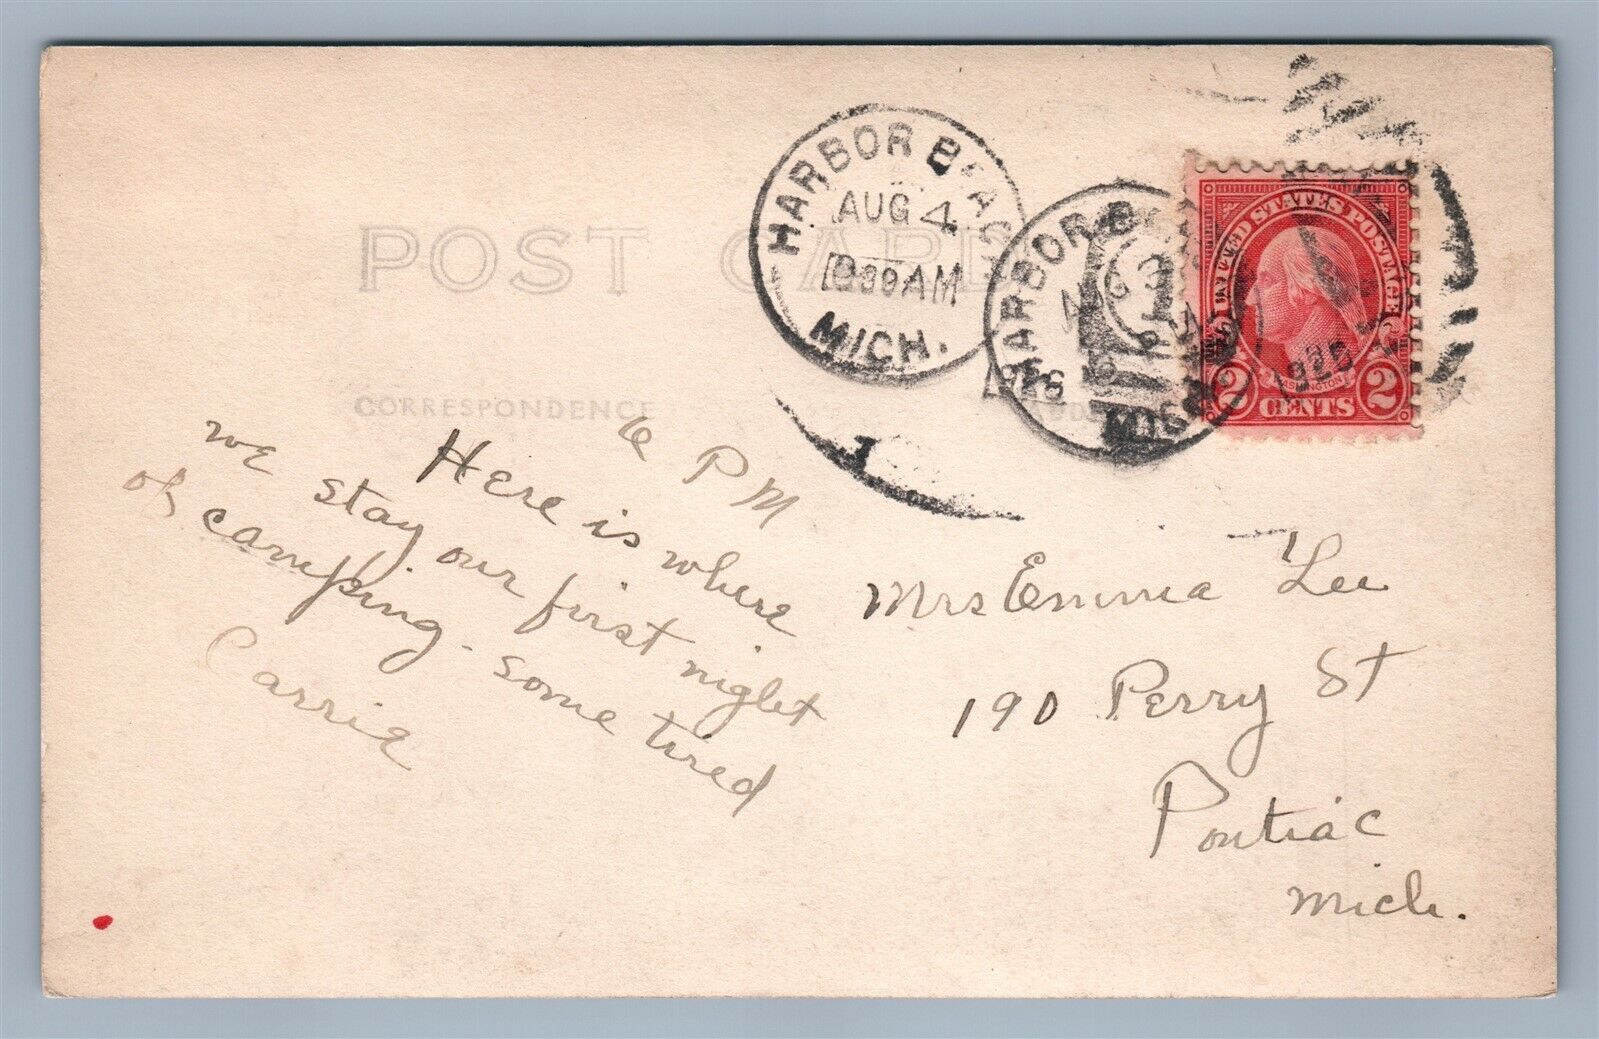 POST CARD
CORRESPONDENCE
HARBOR BEACH
AUG 4
AM
MICH.
HARBOR
AUG 3
1926
UNITED STATES POSTAGE
WASHINGTON
2 CENTS 2
6 PM
Here is where
we stay our first night
of camping. some tired
Carrie
Mrs Emma Lee
190 Perry St
Pontiac
Mich.